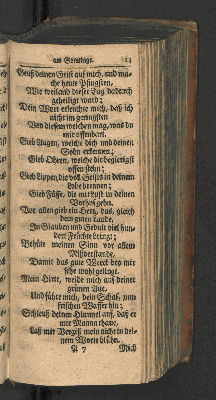 am Sonntage. 13
Geuß deinen Geist auf mich, und ma-
che heute Pfingsten,
Wie weiland dieser Tag dadurch
geheiligt ward;
Dein Wort erleuchte mich, daß ich
nicht im geringsten
Von diesem weichen mag, was du
mir offenbart.
Gieb Augen, welche dich und deinen
Sohn erkennen;
Gieb Ohren, welche die begierigst
offen stehn;
Gieb Lippen, die voll Geistes in deinem
Lobe brennen;
Gieb Füsse, die mit Lust in deinen
Vorhof gehn.
Vor allen gieb ein Herz, das, gleich
dem guten Lande,
In Glauben und Gedult viel hun-
dert Früchte bringt;
Behüte meinen Sinn vor allem
Mißverstande,
Damit das gute Werk bey mir
sehr wohl gelingt.
Mein Hirte, weide mich auf deiner
grünen Aue,
Und führe mich, dein Schaf, zum
frischen Wasser hin;
Schleuß deinen Himmel auf, daß er
mir Manna thaue,
Laß mir Vergiß mein nicht in dei-
nem Worte blühn.
A 7 Mich